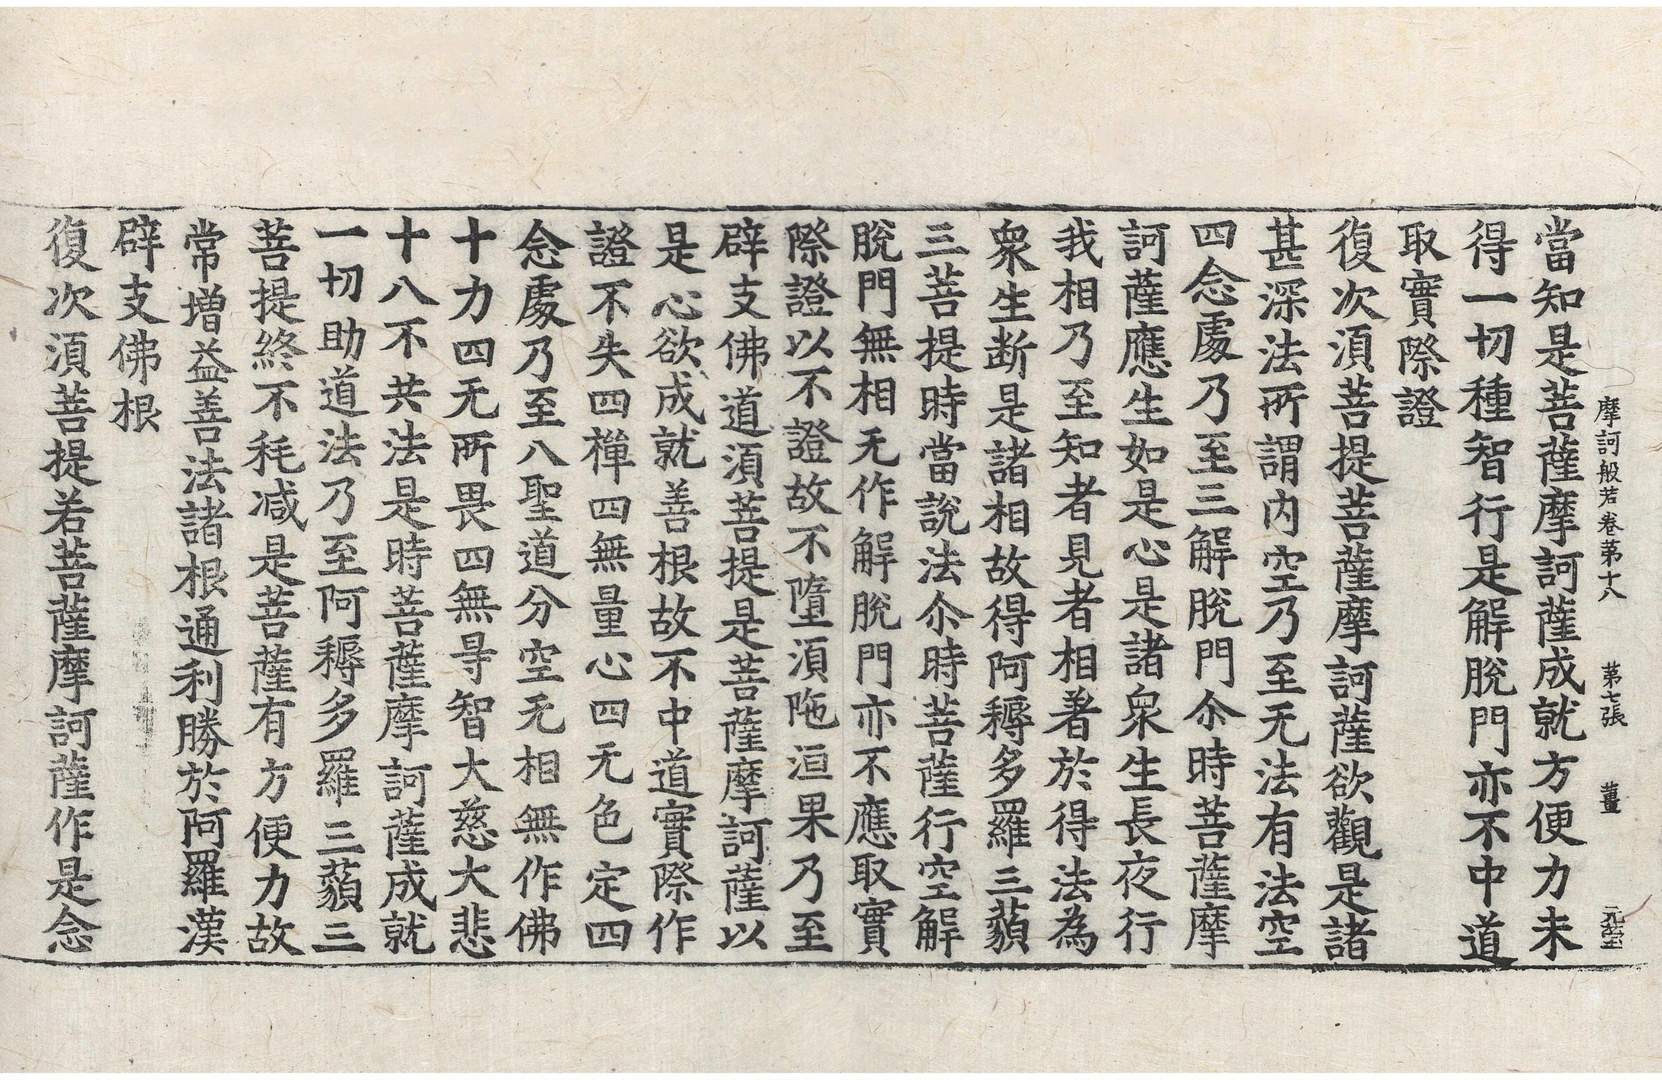 摩訶般若卷第十八 第七張 薑
當知是菩薩摩訶薩成就方便力未
得一切種智行是解脫門亦不中道
取實際證
復次湏菩提菩薩摩訶薩欲觀是諸
甚深法所謂內空乃至无法有法空
四念處乃至三解脫門尒時菩薩摩
訶薩應生如是心是諸衆生長夜行
我相乃至知者見者相著於得法為
衆生断是諸相故得阿耨多羅三藐
三菩提時當說法尒時菩薩行空解
脫門無相无作解脫門亦不應取實
際證以不證故不墮湏陁洹果乃至
辟支佛道湏菩提是菩薩摩訶薩以
是心欲成就善根故不中道實際作
證不失四禪四無量心四无色定四
念處乃至八聖道分空无相無作佛
十力四无所畏四無㝵智大慈大悲
十八不共法是時菩薩摩訶薩成就
一切助道法乃至阿耨多羅三藐三
菩提終不秏減是菩薩有方便力故
常增益善法諸根通利勝於阿羅漢
辟支佛根
復次湏菩提若菩薩摩訶薩作是念